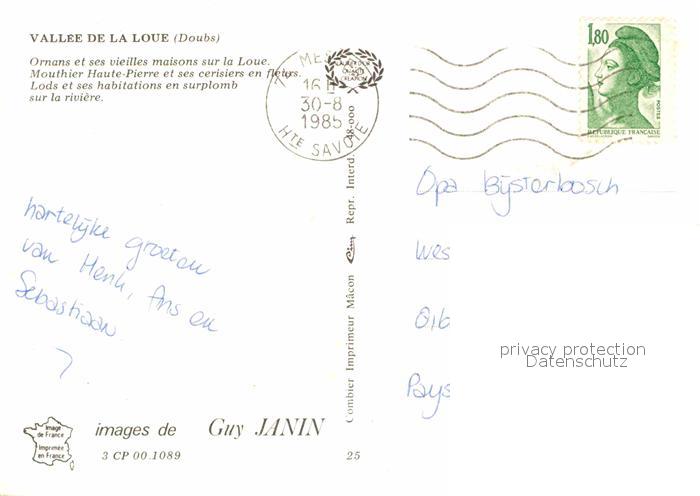 VALLÉE DE LA LOUE (Doubs)
Ornans et ses vieilles maisons sur la Loue.
Mouthier Haute-Pierre et ses cerisiers en fleurs.
Lods et ses habitations en surplomb
sur la rivière.
16 H
30-8
1985
HTE SAVOIE
1,80
POSTES
REPUBLIQUE FRANÇAISE
Opa Bijsterbosch
Wes
Olb
Pays
privacy protection
Datenschutz
hartelijke groeten
van Henk, Ans en
Sebastiaan
Combier Imprimeur Mâcon Cim Repr. Interd. 48-000
Image
de France
Imprimée
en France
images de Guy JANIN
3 CP 00.1089
25